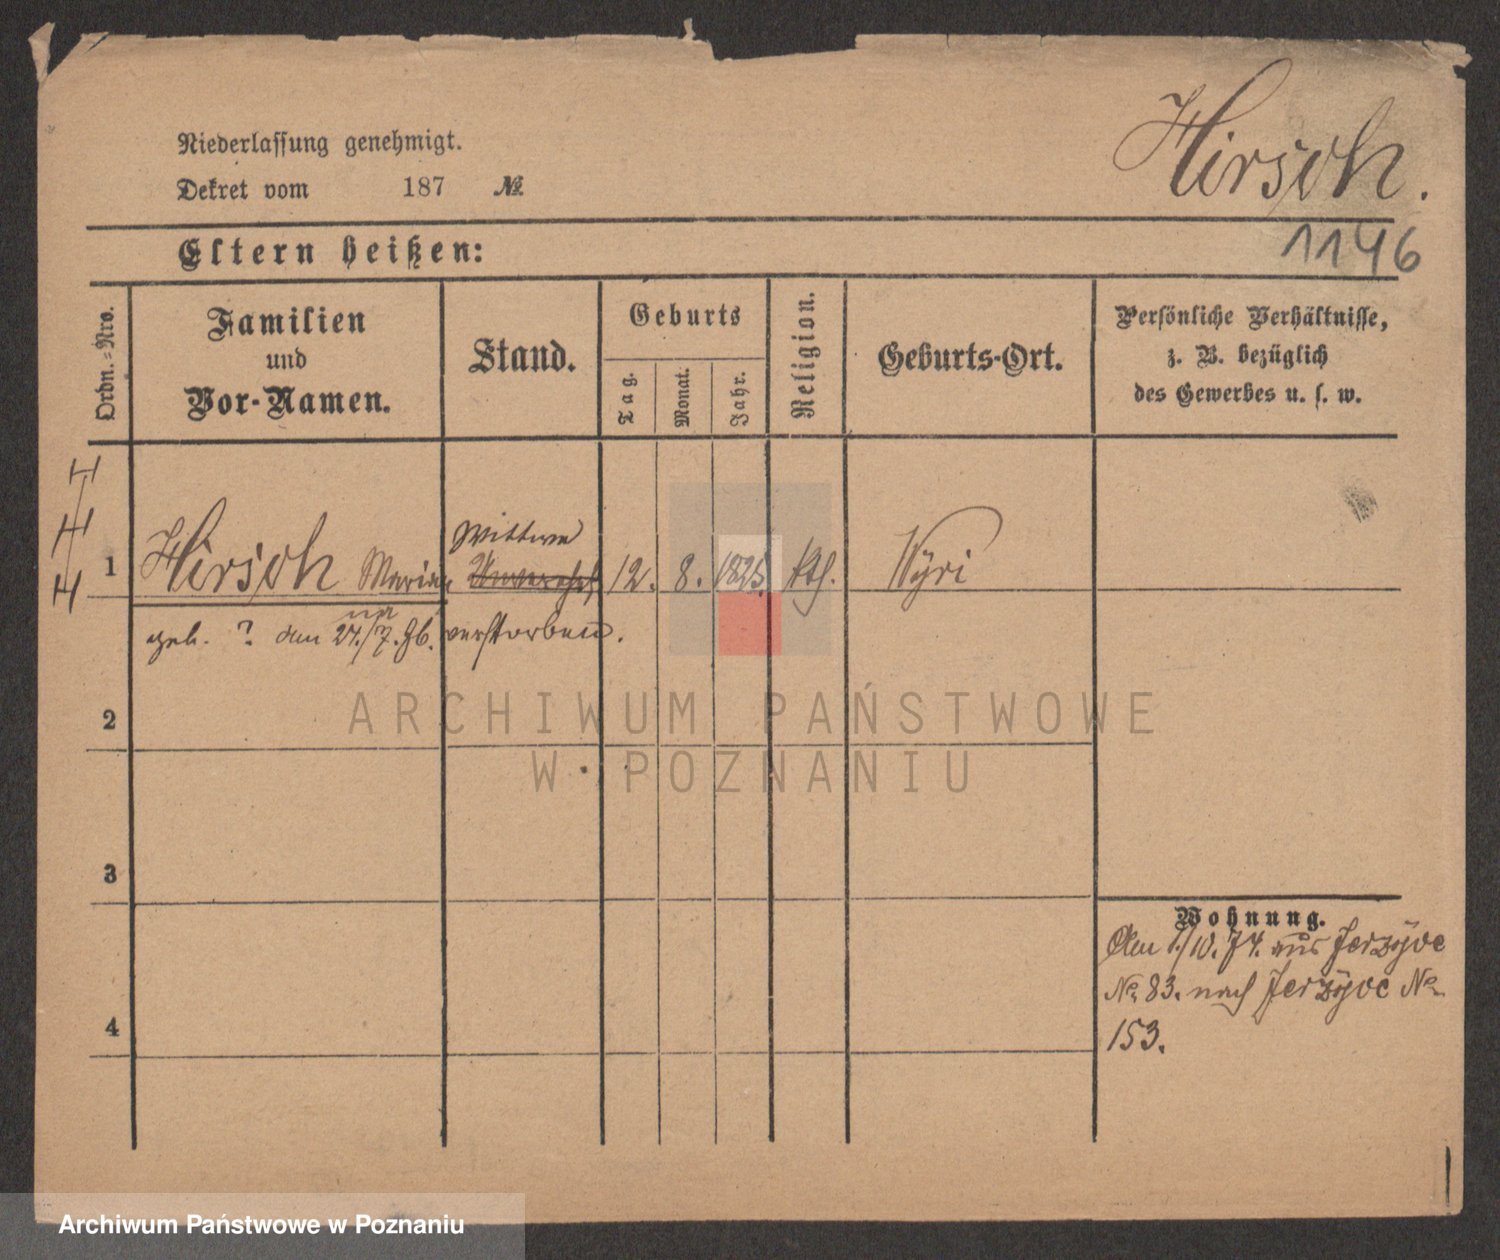 Niederlassung genehmigt.
Dekret vom 187 №
Hirsch.
1146
Eltern heißen:
Ordn.-Nro.
Familien
und
Vor-Namen.
Stand.
Geburts
Tag.
Monat.
Jahr.
Religion.
Geburts-Ort.
Persönliche Verhältnisse,
z. B. bezüglich
des Gewerbes u. s. w.
Wittwe
1 Hirsch Marian 12. 8. 1825. kth.
na
geb. ? den 24./7. 96. verstorben.
2
3
4
Wohnung.
Den 1./10. 74. aus Jerzyce
№ 83. nach Jerzyce №
153.
ARCHIWUM PAŃSTWOWE
W POZNANIU
Archiwum Państwowe w Poznaniu